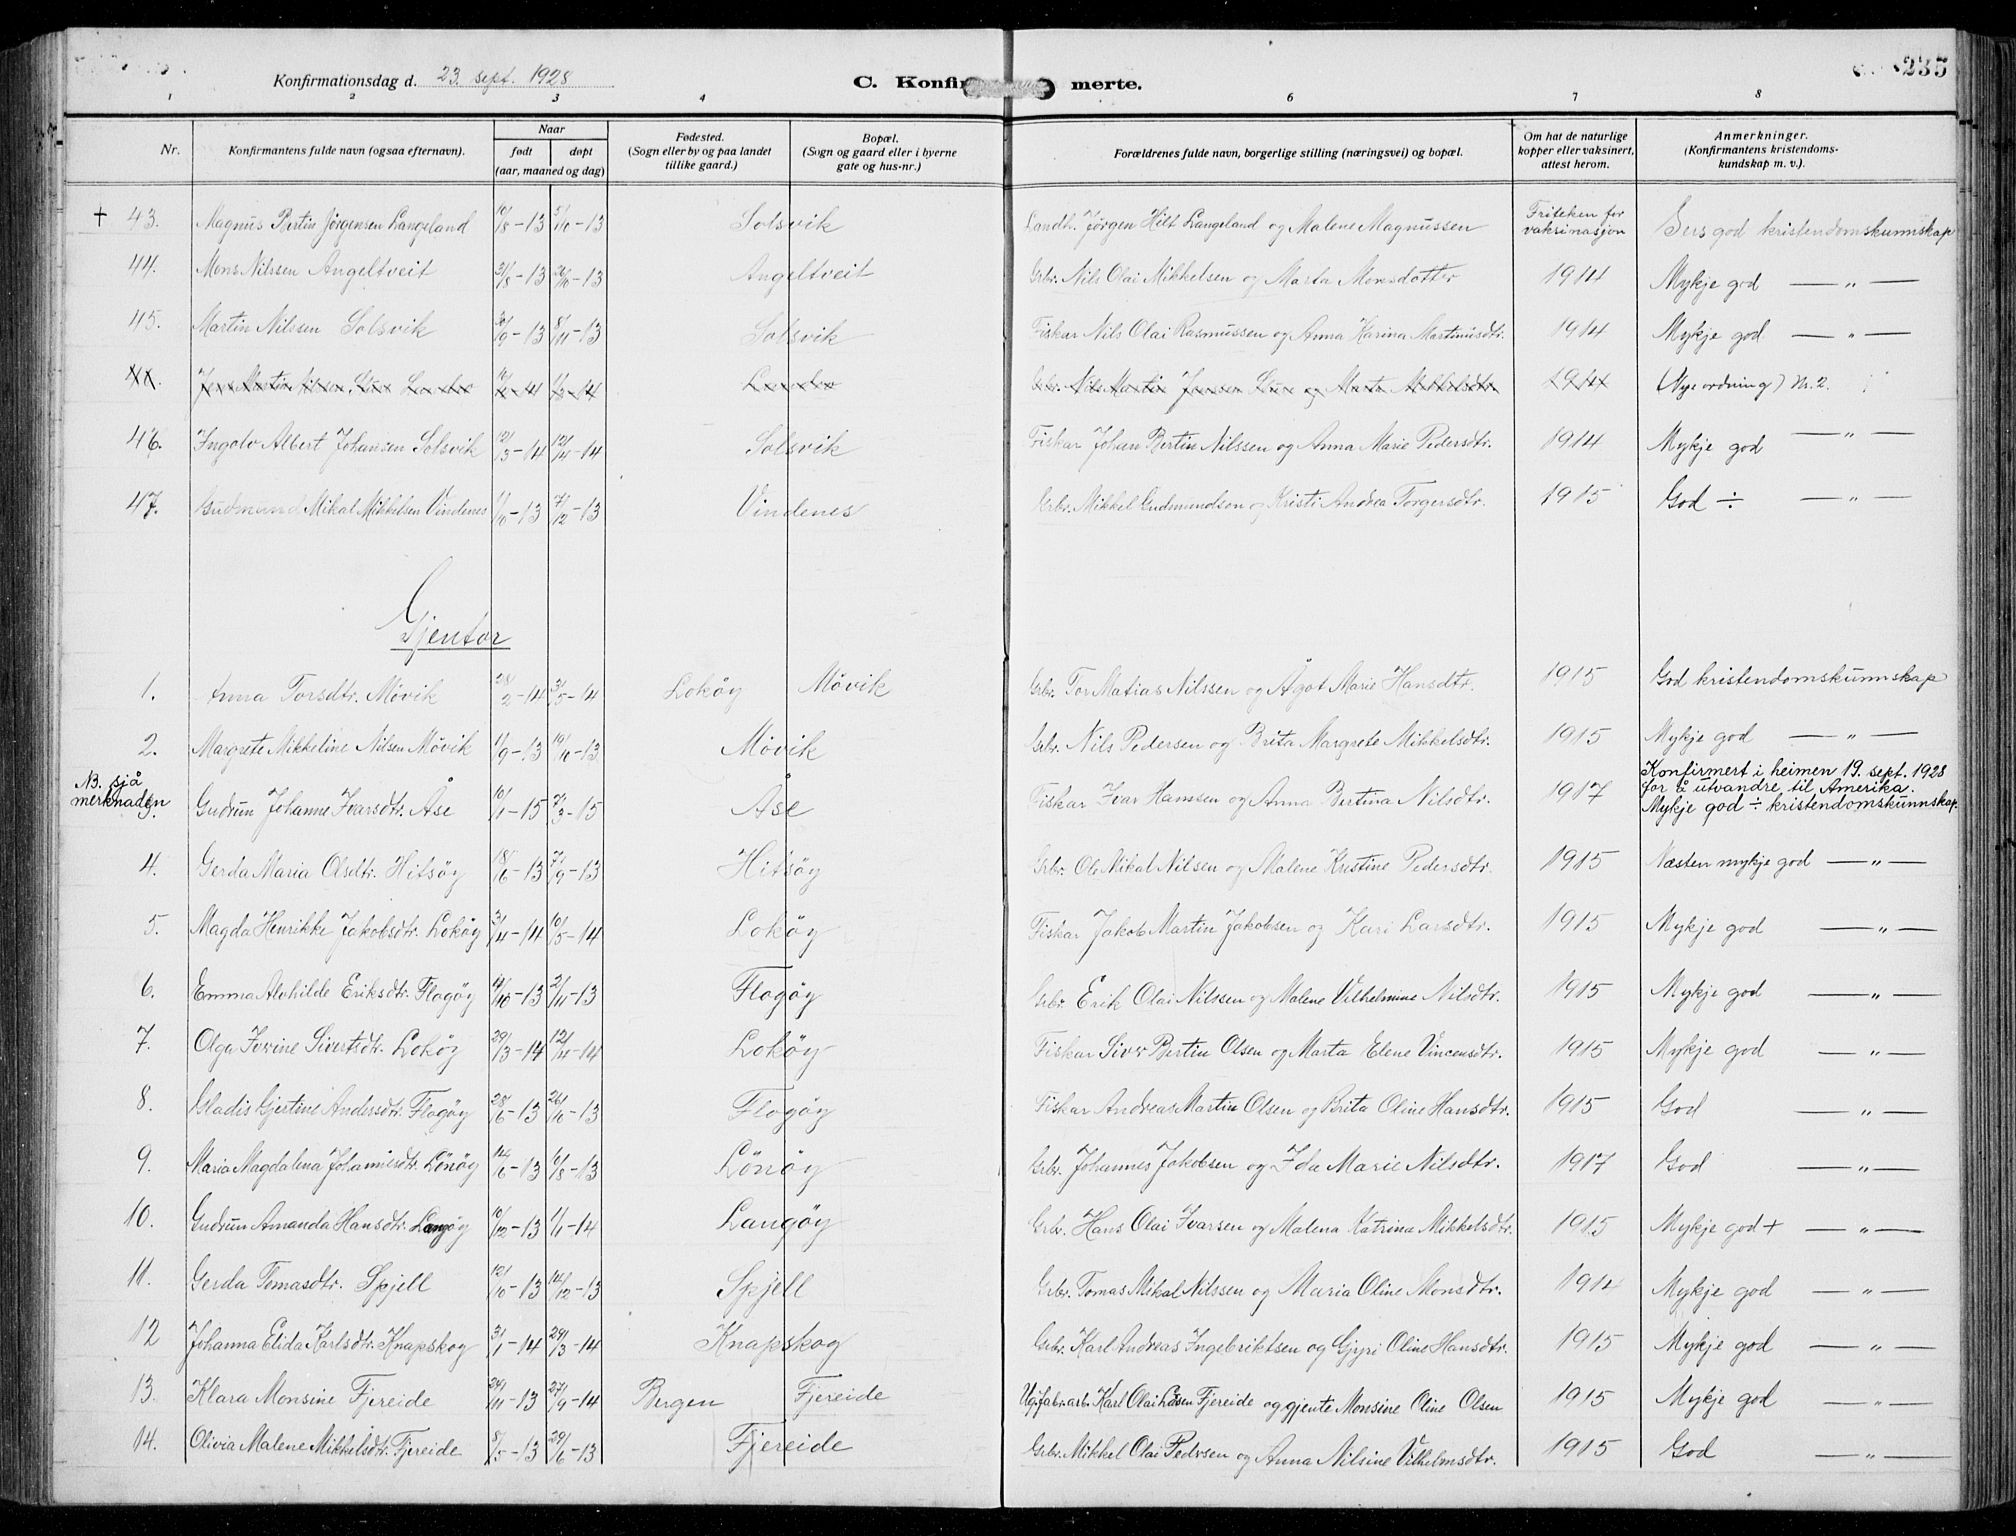 Konfirmationsdag d. 23. sept. 1928
C. Konfir merte.
235
1 2 3 4 5 6 7 8
Nr. Konfirmantens fulde navn (ogsaa efternavn). Naar født døpt (aar, maaned og dag) Fødested. (Sogn eller by og paa landet tillike gaard.) Bopæl. (Sogn og gaard eller i byerne gate og hus-nr.) Forældrenes fulde navn, borgerlige stilling (næringsvei) og bopæl. Om hat de naturlige kopper eller vaksinert, attest herom. Anmerkninger. (Konfirmantens kristendomskundskap m. v.)
+ 43. Magnus Bertin Jörgensen Langeland 10/8-13 5/10-13 Solsvik Landh. Jörgen Hilt Langeland og Malene Magnussen Friteken for vaksinasjon Sers god kristendomskunnskap
44. Mons Nilssen Angeltveit 31/8-13 26/10-13 Angeltveit Grbr. Nils Olai Mikkelsen og Marta Monsdotter 1914 Mykje god — „ —
45. Martin Nilssen Solsvik /9-13 8/11-13 Solsvik Fiskar Nils Olai Rasmussen og Anna Karina Martinusdtr. 1914 Mykje god — „ —
Nils Martin Jensen Sture og Marta Mikkelsdtr. 1914 (Nye ordning) Nr. 2.
46. Ingolv Albert Johansen Solsvik 12/3-14 12/4-14 Solsvik Fiskar Johan Bertin Nilssen og Anna Marie Pedersdtr. 1914 Mykje god — „ —
47. Gudmund Mikal Mikkelsen Vindenes 1/10-13 7/12-13 Vindenes Grbr. Mikkel Gudmundson og Kristi Andrea Torgersdtr. 1915 God ÷ — „ —
Gjentor
1. Anna Torsdtr. Mövik 28/2-14 3/5-14 Loköy Mövik Grbr. Tor Matias Nilssen og Ågot Marie Hansdtr. 1915 God kristendomskunnskap
2. Margrete Mikkeline Nilsen Mövik 11/9-13 19/10-13 Mövik Grbr. Nils Pedersen og Brita Margrete Mikkelsdtr. 1915 Mykje god — „ —
NB. sjå merknaden 3. Gudrun Johanne Ivarsdtr. Åse 10/1-15 7/3-15 Åse Fiskar Ivar Hansen og Anna Bertina Nilsdtr. 1917 Konfirmert i heimen 19. sept. 1928 for å utvandre til Amerika. Mykje god ÷ kristendomskunnskap.
4. Gerda Maria Olsdtr. Hitsöy 18/6-13 7/9-13 Hitsöy Grbr. Ole Mikal Nilsen og Malene Kristine Pedersdtr. 1915 Næsten mykje god — „ —
5. Magda Henrikke Jakobsdtr. Loköy 3/4-14 10/5-14 Loköy Fiskar Jakob Martin Jakobsen og Kari Larsdtr. 1915 Mykje god — „ —
6. Emma Alvhilde Eriksdtr. Flogöy 4/10-13 2/11-13 Flogöy Grbr. Erik Olai Nilssen og Malene Vilhelmine Nilsdtr. 1915 Mykje god — „ —
7. Olga Iverine Sivertsdtr. Loköy 29/3-14 12/4-14 Loköy Fiskar Siver Bertin Olsen og Marta Elene Vincensdtr. 1915 Mykje god — „ —
8. Gladis Gjertine Andersdtr. Flogöy 28/6-13 26/10-13 Flogöy Fiskar Andreas Martin Olsen og Brita Oline Hansdtr. 1915 God — „ —
9. Maria Magdalena Johannesdtr. Lönöy 14/6-13 6/8-13 Lönöy Grbr. Johannes Jakobsen og Ida Marie Nilsdtr. 1917 God — „ —
10. Gudrun Amanda Hansdtr. Langöy 10/12-13 1/1-14 Langöy Grbr. Hans Olai Ivarsen og Malena Katrina Mikkelsdtr. 1915 Mykje god + — „ —
11. Gerda Tomasdtr. Spjell 12/10-13 14/12-13 Spjell Grbr. Tomas Mikal Nilssen og Maria Oline Monsdtr. 1914 Mykje god — „ —
12 Johanna Elida Karlsdtr. Knapskog 3/1-14 29/3-14 Knapskog Grbr. Karl Andreas Ingebriktsen og Gjyri Oline Hansdtr. 1915 Mykje god — „ —
13. Klara Monsine Fjereide 24/11-13 27/9-14 Bergen Fjereide Ug. fabr. arb. Karl Olai Olsen Fjereide og gjente Monsine Oline Olsen 1915 Mykje god — „ —
14. Olivia Malene Mikkelsdtr. Fjereide 8/5-13 29/6-13 Fjereide Grbr. Mikkel Olai Pedersen og Anna Nilsine Vilhelmsdtr. 1915 God — „ —